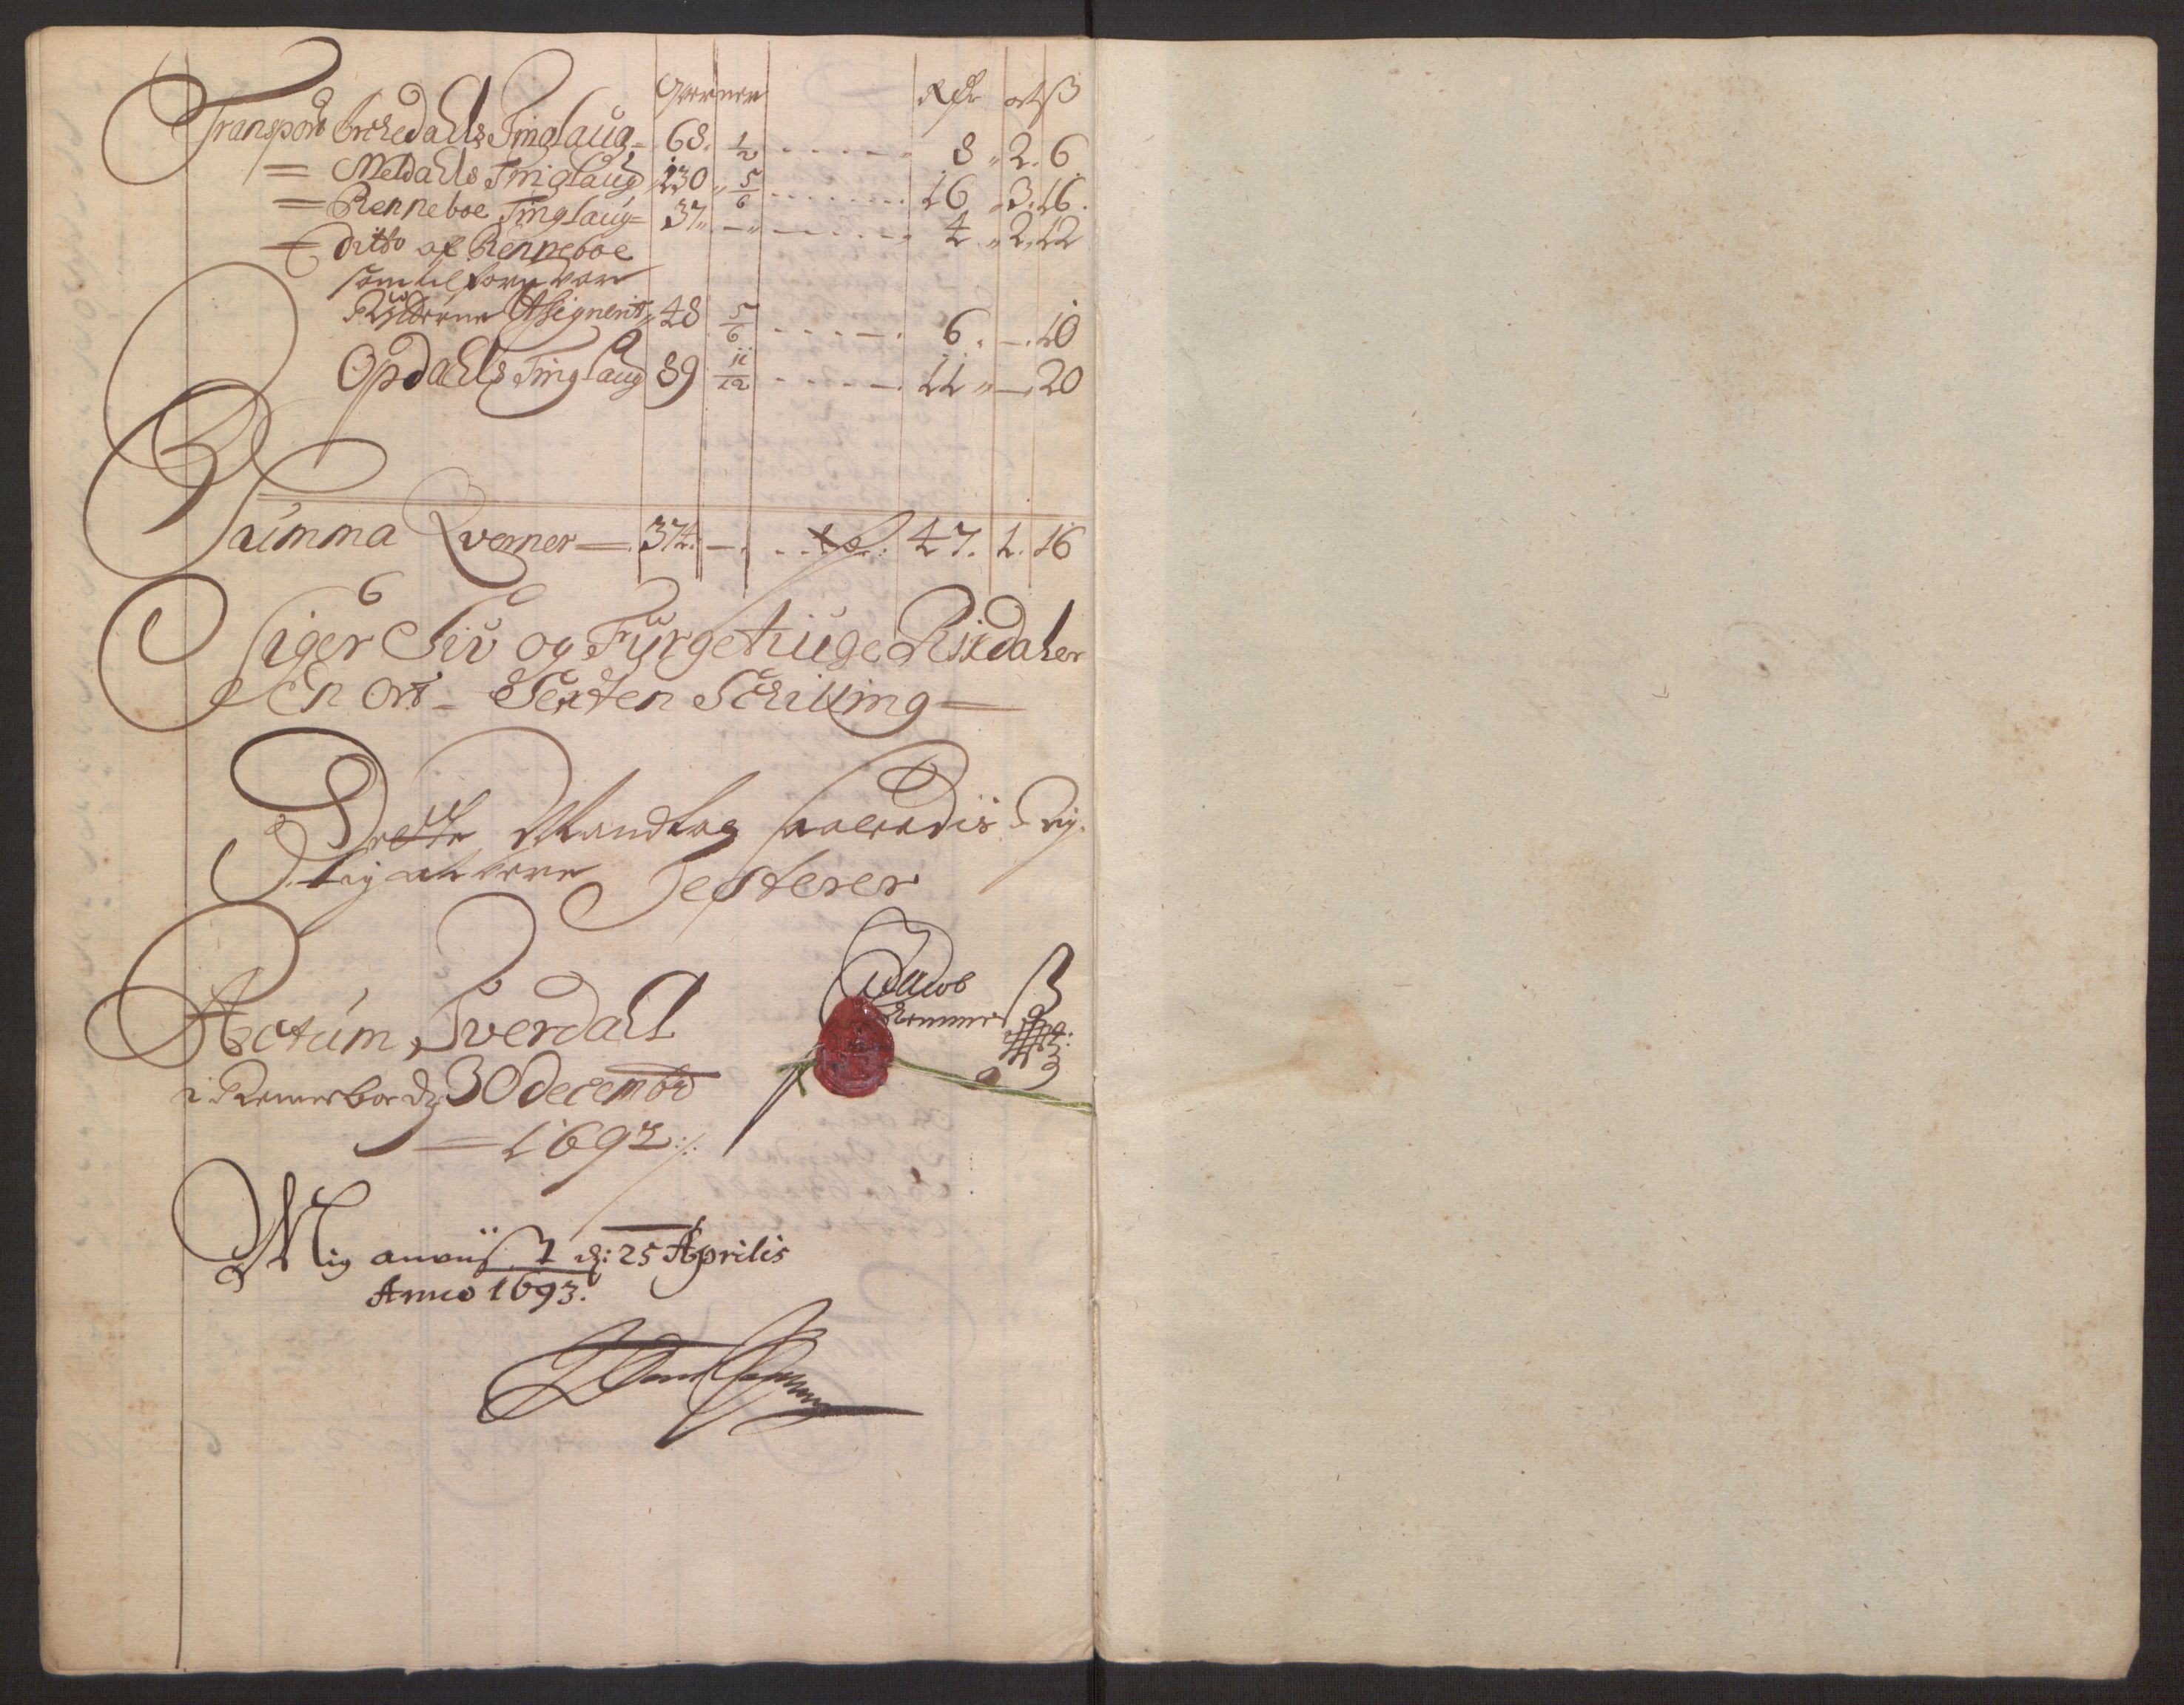 Qverner Rdr ort ß
Transport Orchedahls Tinglaug 68. 1/2 8 2. 6
= Meldahls Tinglaug 130 5/6 16 3. 16.
= Renneboe Tinglaug = 37 — 4 2. 12
= Ditto af Renneboe
som tilforn var
Rÿtterne Assignerit 48 5/6 6. — 10
Opdahls Tinglaug 89 11/12 11 — 20
Summa Qverner — 374. — 47. 1. 16
Siger Siv og Fyrgetiuge Rixdaler
En Ort — Sexten Schilling —
Dette Mandtag saaledis Rig-
tig at were Testerer
Actum Sverdahl
i Rennerboe dg 30 decembr
— 1692 ./.
Jacob
Mig anviist d: 25 Aprilis
Anno 1693.